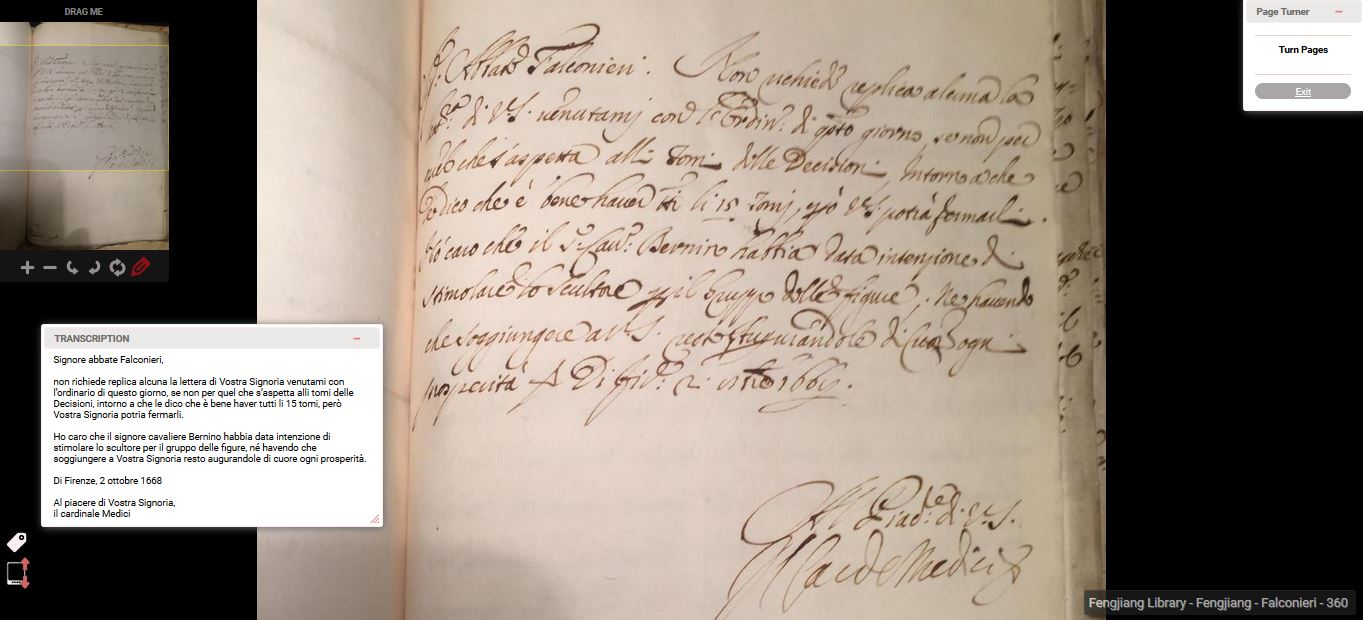 DRAG ME
Page Turner
Turn Pages
Exit
Sr: Abbate Falconieri. Non richiede replica alcuna la
lett.ra di V.S. venutami con l'Ordin.o di qsto giorno, se non per
quel che s'aspetta alli Tomi delle Decisioni, intorno a che
le dico che è bene haver tti li 15 Tomi, però V.S. potria fermarli.
Ho caro che il S.r Cav.r Bernino habbia data intenzione di
stimolare lo scultore p il Gruppo delle figure. Ne havendo
che soggiungere a V.S. resto augurandole di cuor ogni
prosperità Di Fir.e 2 ottre 1668.
Al Piac.re di V.S.
Il Card de Medici
TRANSCRIPTION
Signore abbate Falconieri,
non richiede replica alcuna la lettera di Vostra Signoria venutami con
l'ordinario di questo giorno, se non per quel che s'aspetta alli tomi delle
Decisioni, intorno a che le dico che è bene haver tutti li 15 tomi, però
Vostra Signoria potria fermarli.
Ho caro che il signore cavaliere Bernino habbia data intenzione di
stimolare lo scultore per il gruppo delle figure, né havendo che
soggiungere a Vostra Signoria resto augurandole di cuore ogni prosperità.
Di Firenze, 2 ottobre 1668
Al piacere di Vostra Signoria,
il cardinale Medici
Fengjiang Library - Fengjiang - Falconieri - 360